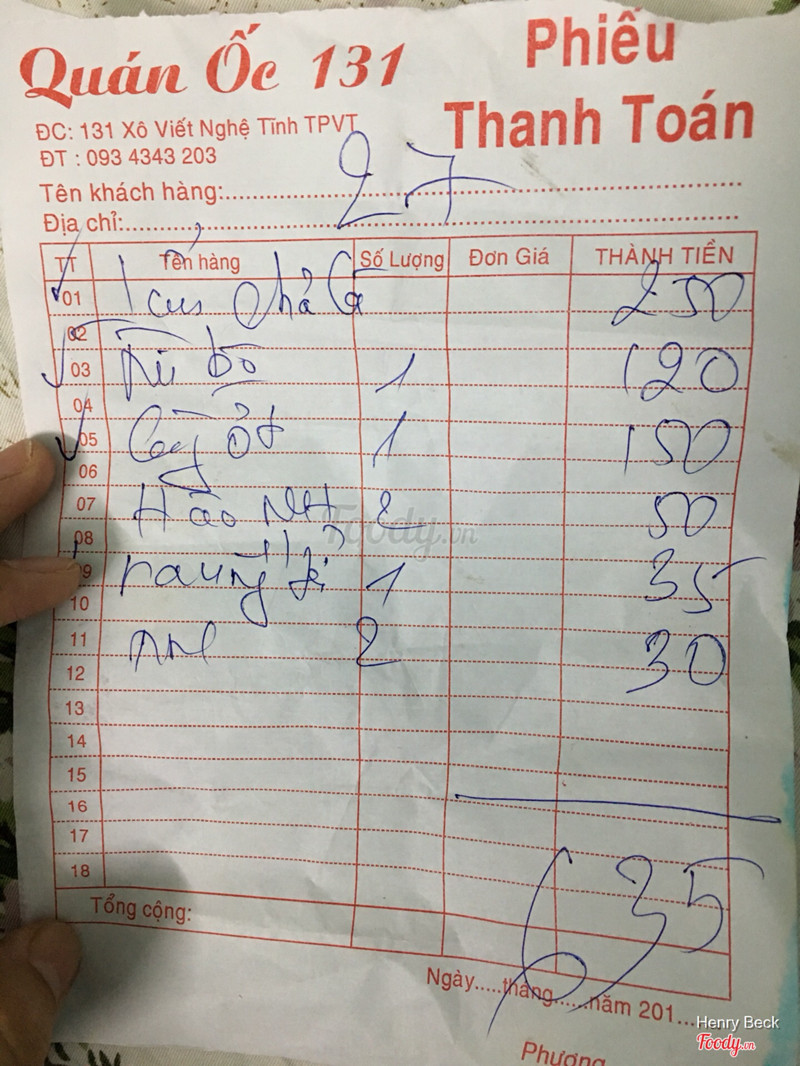 Quán Ốc 131
Phiếu
Thanh Toán
ĐC: 131 Xô Viết Nghệ Tĩnh TPVT
ĐT : 093 4343 203
Tên khách hàng:
27
Địa chỉ:
TT Tên hàng Số Lượng Đơn Giá THÀNH TIỀN
01 1 250
02
03 1 120
04
05 ốt 1 150
06
07 Hào NH 2 50
08
09 rau 1 35
10
11 2 30
12
13
14
15
16
17
18
635
Tổng cộng:
Ngày.....tháng......năm 201...
Phương
Foody.vn
Henry Beck
Foody.vn